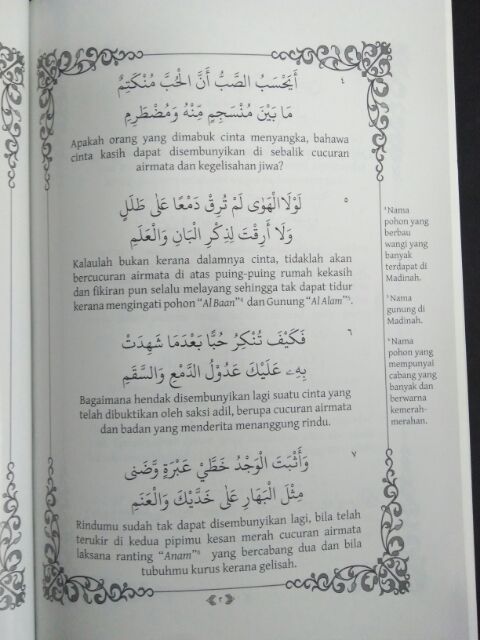 ٤
أَيَحْسَبُ الصَّبُّ أَنَّ الْحُبَّ مُنْكَتِمٌ
مَا بَيْنَ مُنْسَجِمٍ مِّنْهُ وَمُضْطَرِمِ
Apakah orang yang dimabuk cinta menyangka, bahawa
cinta kasih dapat disembunyikan di sebalik cucuran
airmata dan kegelisahan jiwa?
٥
لَوْلَاالْهَوٰى لَمْ تُرِقْ دَمْعًا عَلٰى طَلَلٍ
وَلَا أَرِقْتَ لِذِكْرِ الْبَانِ وَالْعَلَمِ
Kalaulah bukan kerana dalamnya cinta, tidaklah akan
bercucuran airmata di atas puing-puing rumah kekasih
dan fikiran pun selalu melayang sehingga tak dapat tidur
kerana mengingati pohon "Al Baan"⁴ dan Gunung "Al Alam"⁵.
٦
فَكَيْفَ تُنْكِرُ حُبًّا بَعْدَمَا شَهِدَتْ
بِهِۦ عَلَيْكَ عَدُوْلُ الدَّمْعِ وَالسَّقَمِ
Bagaimana hendak disembunyikan lagi suatu cinta yang
telah dibuktikan oleh saksi adil, berupa cucuran airmata
dan badan yang menderita menanggung rindu.
٧
وَأَثْبَتَ الْوَجْدُ خَطَّيْ عَبْرَةٍ وَّضَنٰى
مِثْلَ الْبَهَارِ عَلٰى خَدَّيْكَ وَالْعَنَمِ
Rindumu sudah tak dapat disembunyikan lagi, bila telah
terukir di kedua pipimu kesan merah cucuran airmata
laksana ranting "Anam"⁶ yang bercabang dua dan bila
tubuhmu kurus kerana gelisah.
⁴ Nama
pohon yang
berbau
wangi yang
banyak
terdapat di
Madinah.
⁵ Nama
gunung di
Madinah.
⁶ Nama
pohon yang
mempunyai
cabang yang
banyak dan
berwarna
kemerah-
merahan.
٢